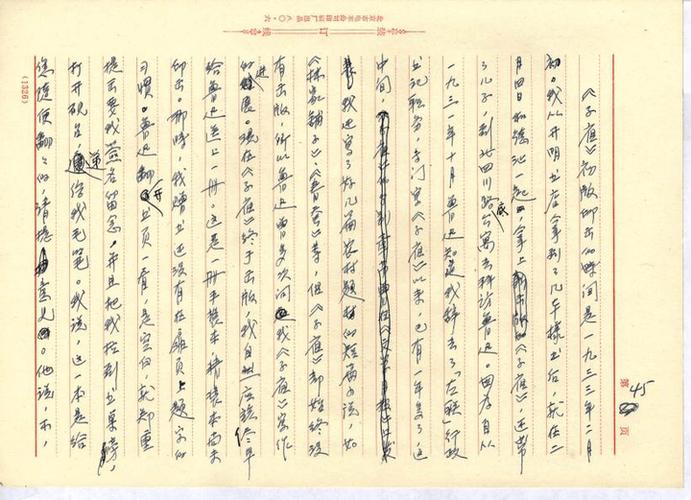 北京市电车公司印刷厂出品 八〇·六
装订线
第45页
《子夜》初版印出的时间是一九三三年二月
初。我从开明书店拿到了几本样书后，就在二
月四日和德沚一起，拿上《子夜》，还带
了儿子，到北四川路公寓去拜访鲁迅。因为自从
一九三一年十月鲁迅知道我辞去了“左联”行政
书记职务，专门写《子夜》以来，已有一年多了，这
中间，
我还写了好几篇农村题材的短篇小说，如
《林家铺子》、《春蚕》等，但《子夜》却始终没
有出版，所以鲁迅曾多次问我《子夜》写作
的进展。现在《子夜》终于出版，我自应该尽早
给鲁迅送上一册。这是一册平装本，精装本尚未
印出。那时，我赠书还没有在扉页上题字的
习惯。鲁迅翻开书页一看，是空白，就郑重
提出要我签名留念，并且把我拉到书桌旁，
打开砚台，递给我毛笔。我说，这一本是给
您随便翻翻的，请提意见。他说，不，
(1326)